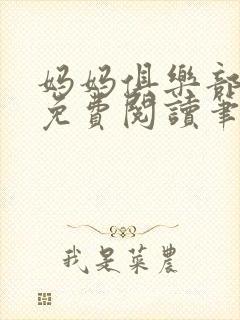 媽媽俱樂部
免費閱讀筆
我是菜農